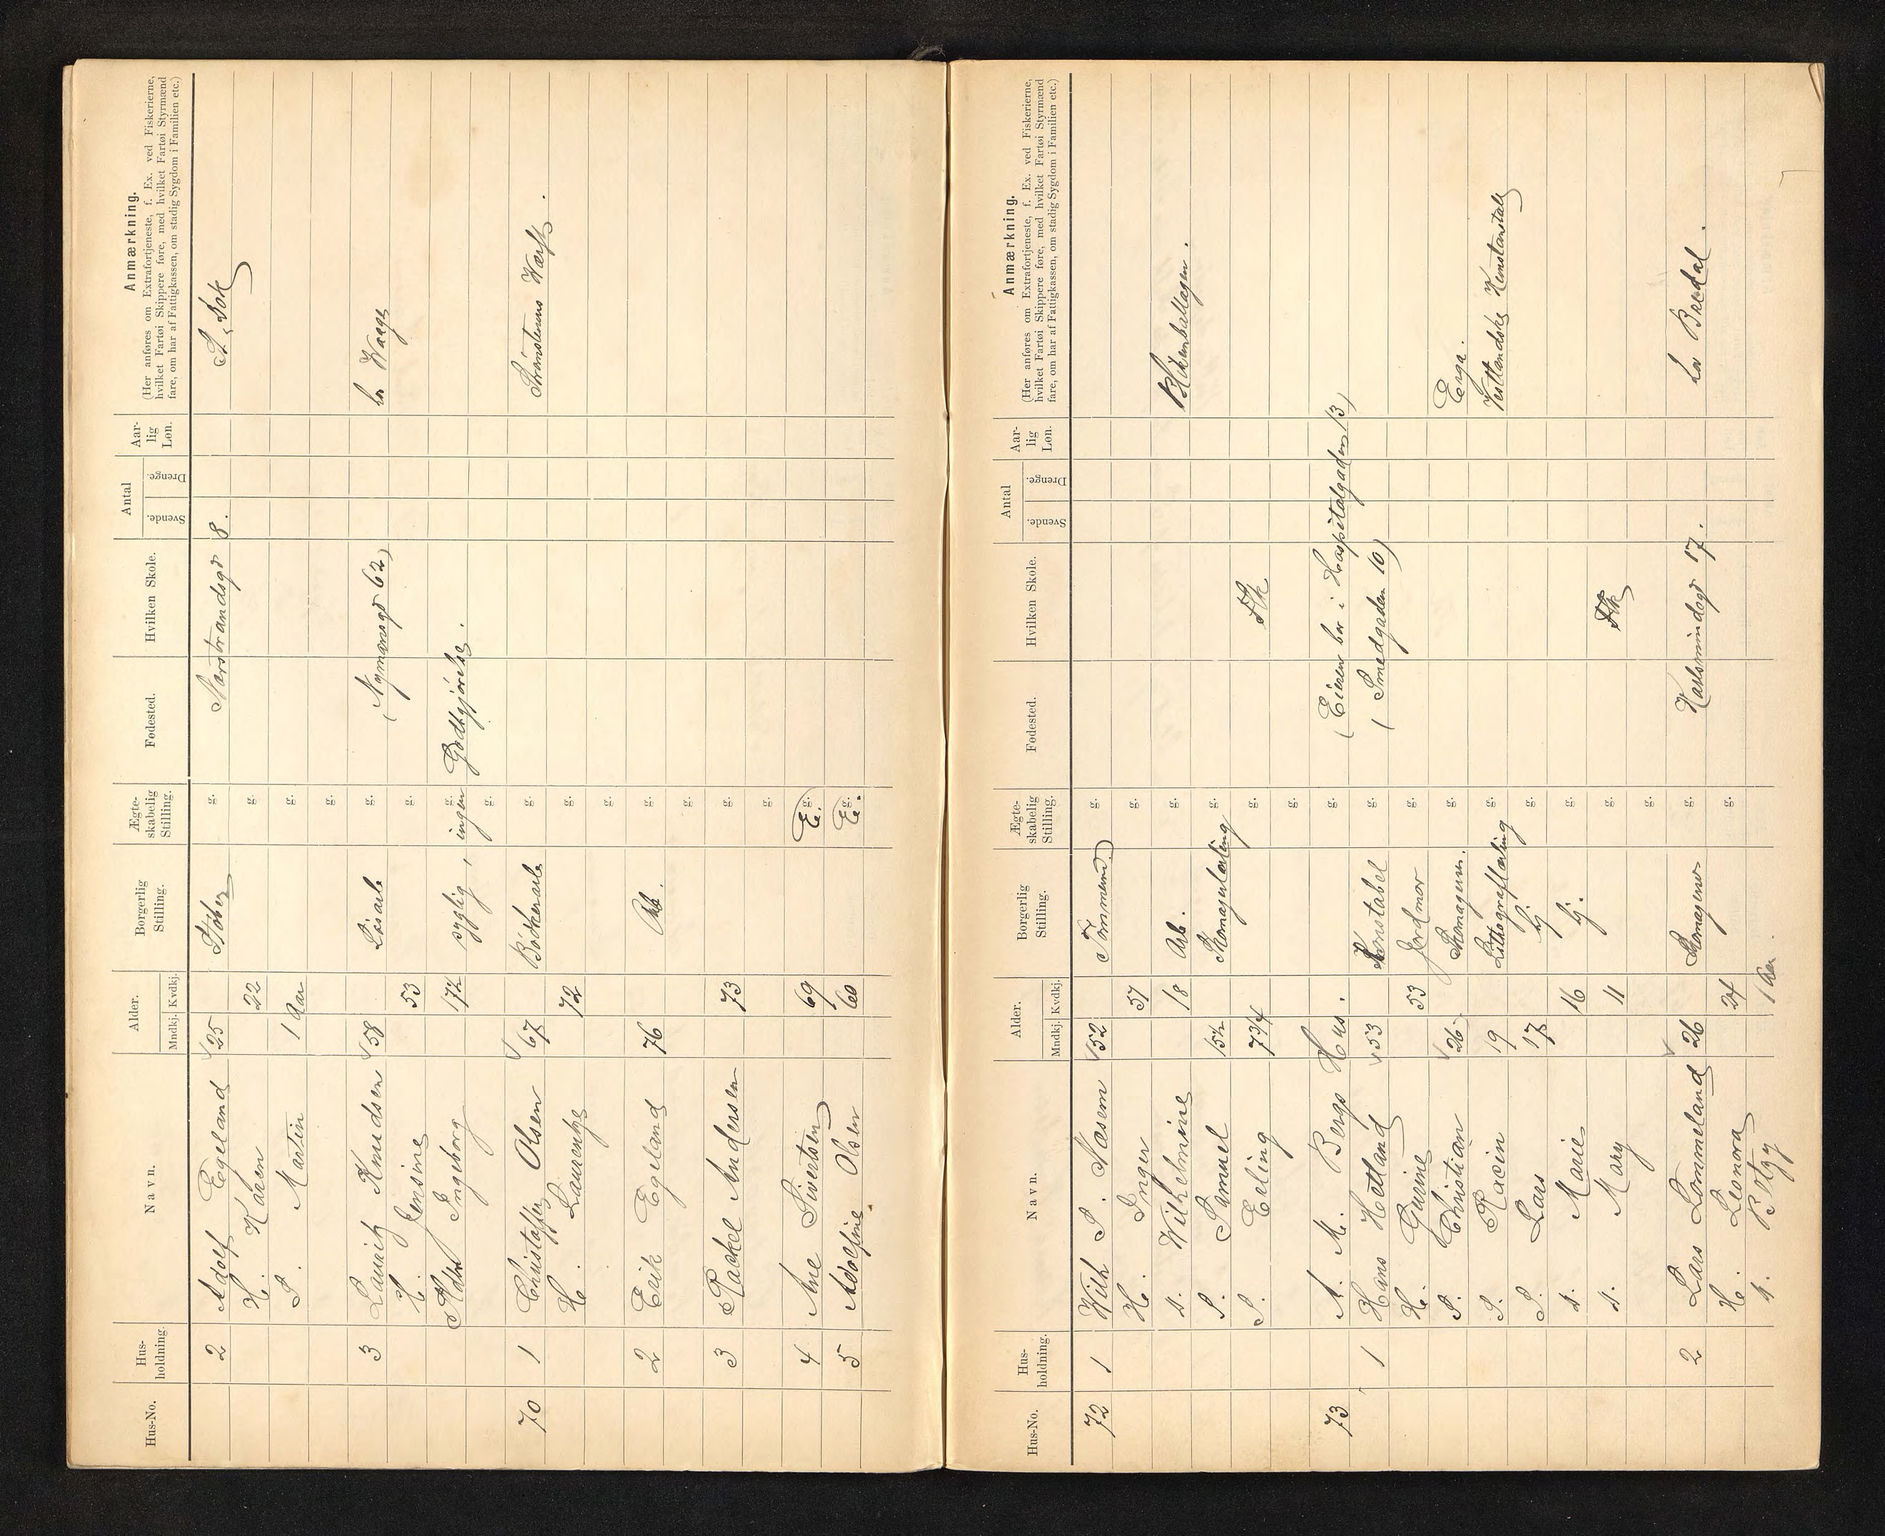 Hus-No. Hus-holdning. Navn. Alder. Mndkj. Kvdkj. Borgerlig Stilling. Ægte-skabelig Stilling. Fødested. Hvilken Skole. Antal Svende. Drenge. Aar-lig Løn. Anmærkning.
(Her anføres om Extrafortjeneste, f. Ex. ved Fiskerierne, hvilket Fartøi Skippere føre, med hvilket Fartøi Styrmænd fare, om har af Fattigkassen, om stadig Sygdom i Familien etc.)
2 Adolf Egeland 25 Støber g. Nørstrandsgd 8. St. Dok
H. Karen 22 g.
S. Martin 1 Aar g.
g.
3 Lauritz Knudsen 58 Løsarb g. (Nymansgd 62) hos Waage
H. Jensine 53 g.
Ingeborg 172 syglig, ingen g. Godtgjørelse.
g.
70 1 Christoffer Olsen 67 Bødkerarb g. Strømsteens Værft.
H. Laurentze 72 g.
g.
2 Erik Egeland 76 Arb. g.
g.
3 Rackel Andersen 73 g.
g.
4 Ane Sivertsen 69 E. g.
5 Adolfine Olsen 60 E. g.
Hus-No. Hus-holdning. Navn. Alder. Mndkj. Kvdkj. Borgerlig Stilling. Ægte-skabelig Stilling. Fødested. Hvilken Skole. Antal Svende. Drenge. Aar-lig Løn. Anmærkning.
(Her anføres om Extrafortjeneste, f. Ex. ved Fiskerierne, hvilket Fartøi Skippere føre, med hvilket Fartøi Styrmænd fare, om har af Fattigkassen, om stadig Sygdom i Familien etc.)
72 1 Wilh S. Næsem 52 Tømmerm. g.
H. Inger 57 g.
d. Wilhelmine 18 Arb. g. Blikemballagen.
S. Samuel 15½ Skomagerlærling g.
S. Erling 7 3/4 g. Flk
g.
73 A. M. Bergs Hus. g. (Eieren bor i Hospitalgaden 13)
1 Hans Hetland 53 Konstabel g. (Smedgaden 10)
H. Gurine 53 Jordmor g.
S. Christian 26 Skomagersv. g. Erga.
S. Racin 19 Lithograflærling g. Vestlandske Kunstanstalt
S. Lars 17 hj. g.
d. Marie 16 hj. g.
d. Mary 11 g. Flk
g.
2 Lars Lommeland 26 Skomagersv g. Karlsmindegd 17. hos Bredal.
H. Leonora 24 g.
d. Betzy 1 Aar.